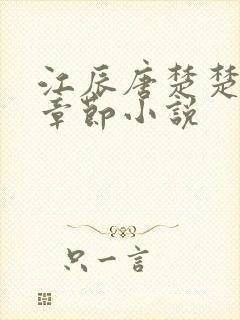 江辰唐楚楚
章节小说
只一言